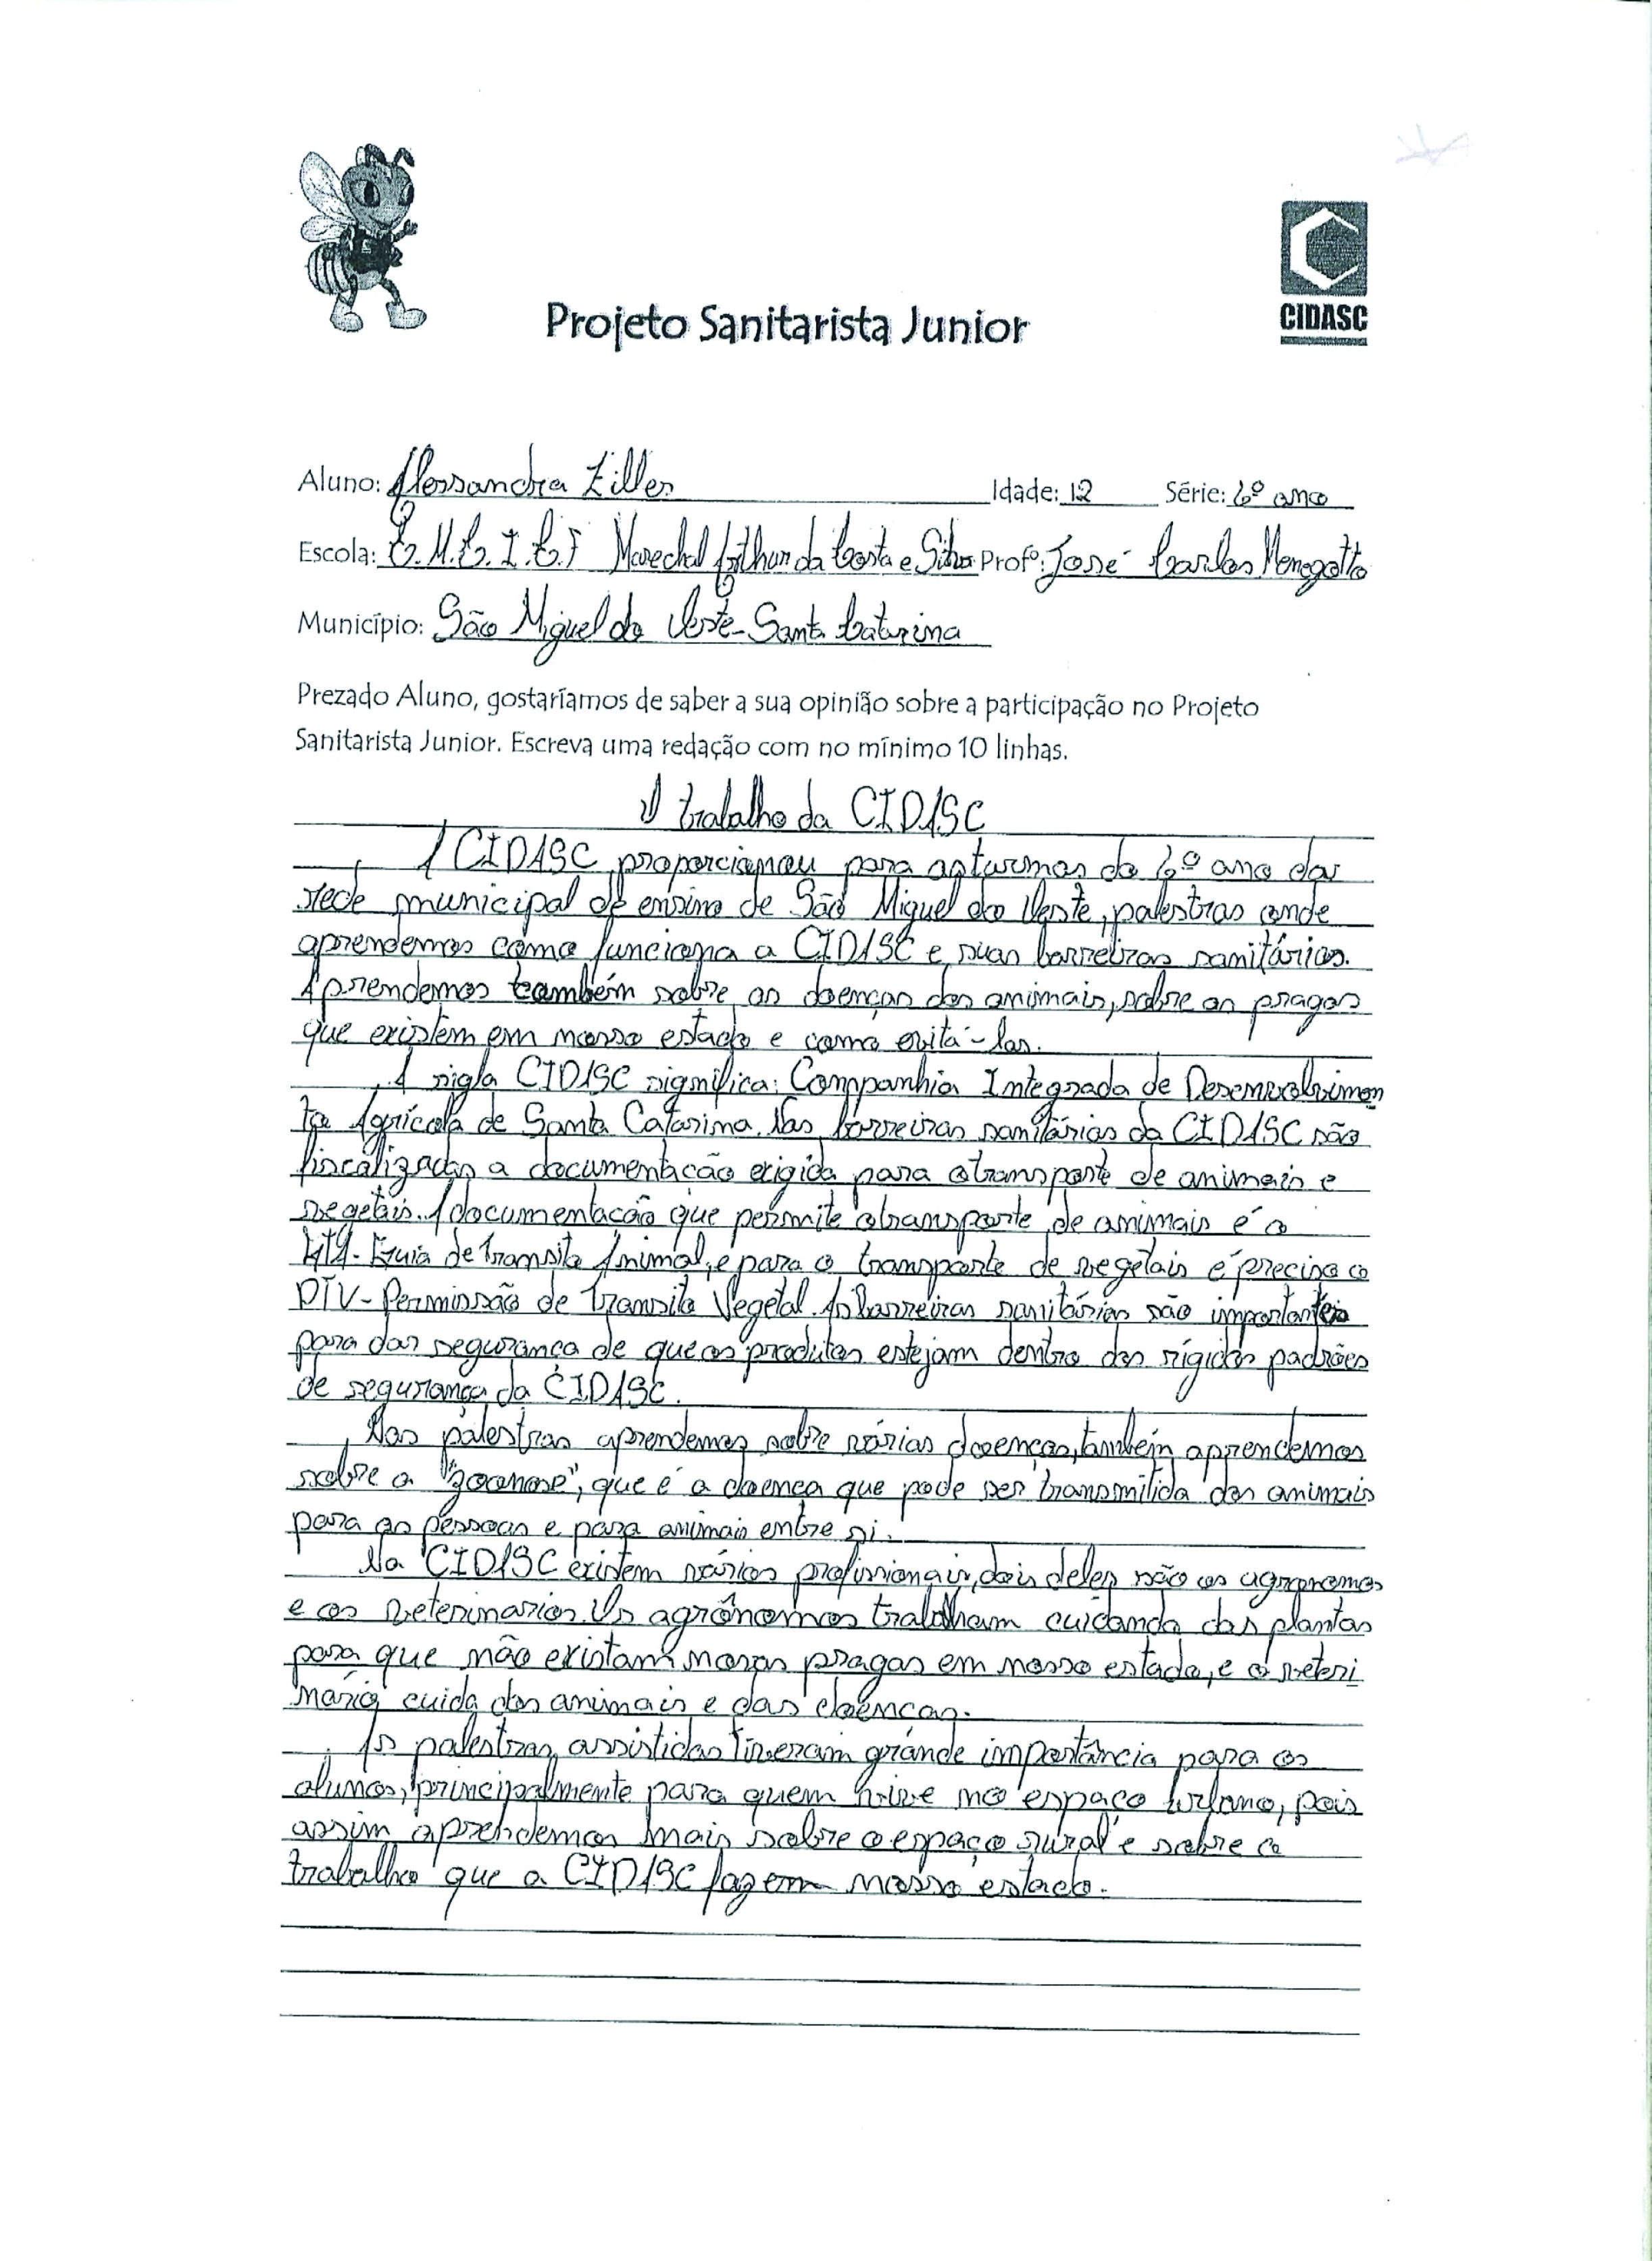 CIDASC
Projeto Sanitarista Junior
Aluno: Alessandra Ziller Idade: 12 Série: 6º ano
Escola: E. M. E. I. E. F Marechal Arthur da Costa e Silva Profº: José Carlos Menegatto
Município: São Miguel do Oeste - Santa Catarina
Prezado Aluno, gostaríamos de saber a sua opinião sobre a participação no Projeto
Sanitarista Junior. Escreva uma redação com no mínimo 10 linhas.
O trabalho da CIDASC
A CIDASC proporcionou para as turmas do 6º ano da
rede municipal de ensino de São Miguel do Oeste, palestras onde
aprendemos como funciona a CIDASC e suas barreiras sanitárias.
Aprendemos também sobre as doenças dos animais, sobre as pragas
que existem em nosso estado e como evitá-las.
A sigla CIDASC significa: Companhia Integrada de Desenvolvimen
to Agrícola de Santa Catarina. Nas barreiras sanitárias da CIDASC são
fiscalizadas a documentação exigida para o transporte de animais e
vegetais. A documentação que permite o transporte de animais é a
GTA - Guia de Transito Animal, e para o transporte de vegetais é preciso o
PTV - Permissão de Transito Vegetal. As barreiras sanitárias são importantes
para dar segurança de que os produtos estejam dentro dos rígidos padrões
de segurança da CIDASC.
Nas palestras aprendemos sobre várias doenças, também aprendemos
sobre a "zoonose", que é a doença que pode ser transmitida dos animais
para as pessoas e para animais entre si.
Na CIDASC existem vários profissionais, dois deles são os agronomos
e os veterinarios. Os agrônomos trabalham cuidando das plantas
para que não existam novas pragas em nosso estado, e o veteri
nario cuida dos animais e das doenças.
As palestras assistidas tiveram grande importância para os
alunos, principalmente para quem vive no espaço urbano, pois
assim aprendemos mais sobre o espaço rural e sobre o
trabalho que a CIDASC faz em nosso estado.